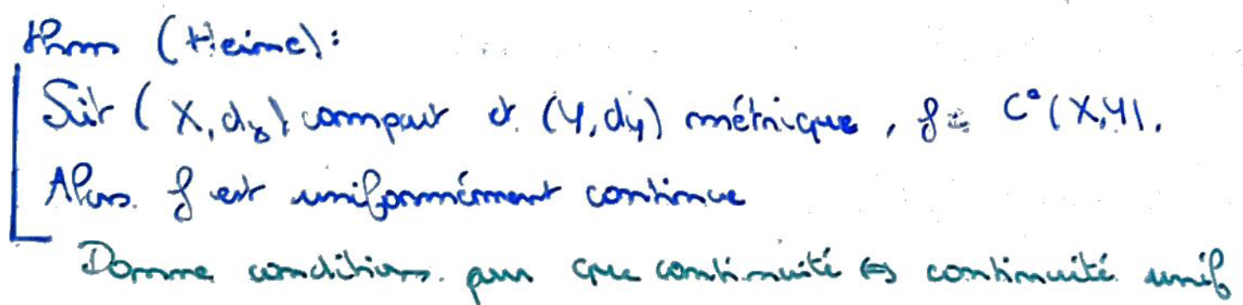 Thm (Heine):
Soit (X, dx) compact et (Y, dy) métrique, f ∈ C°(X,Y).
Alors f est uniformément continue
Donne conditions pour que continuité ⇔ continuité unif